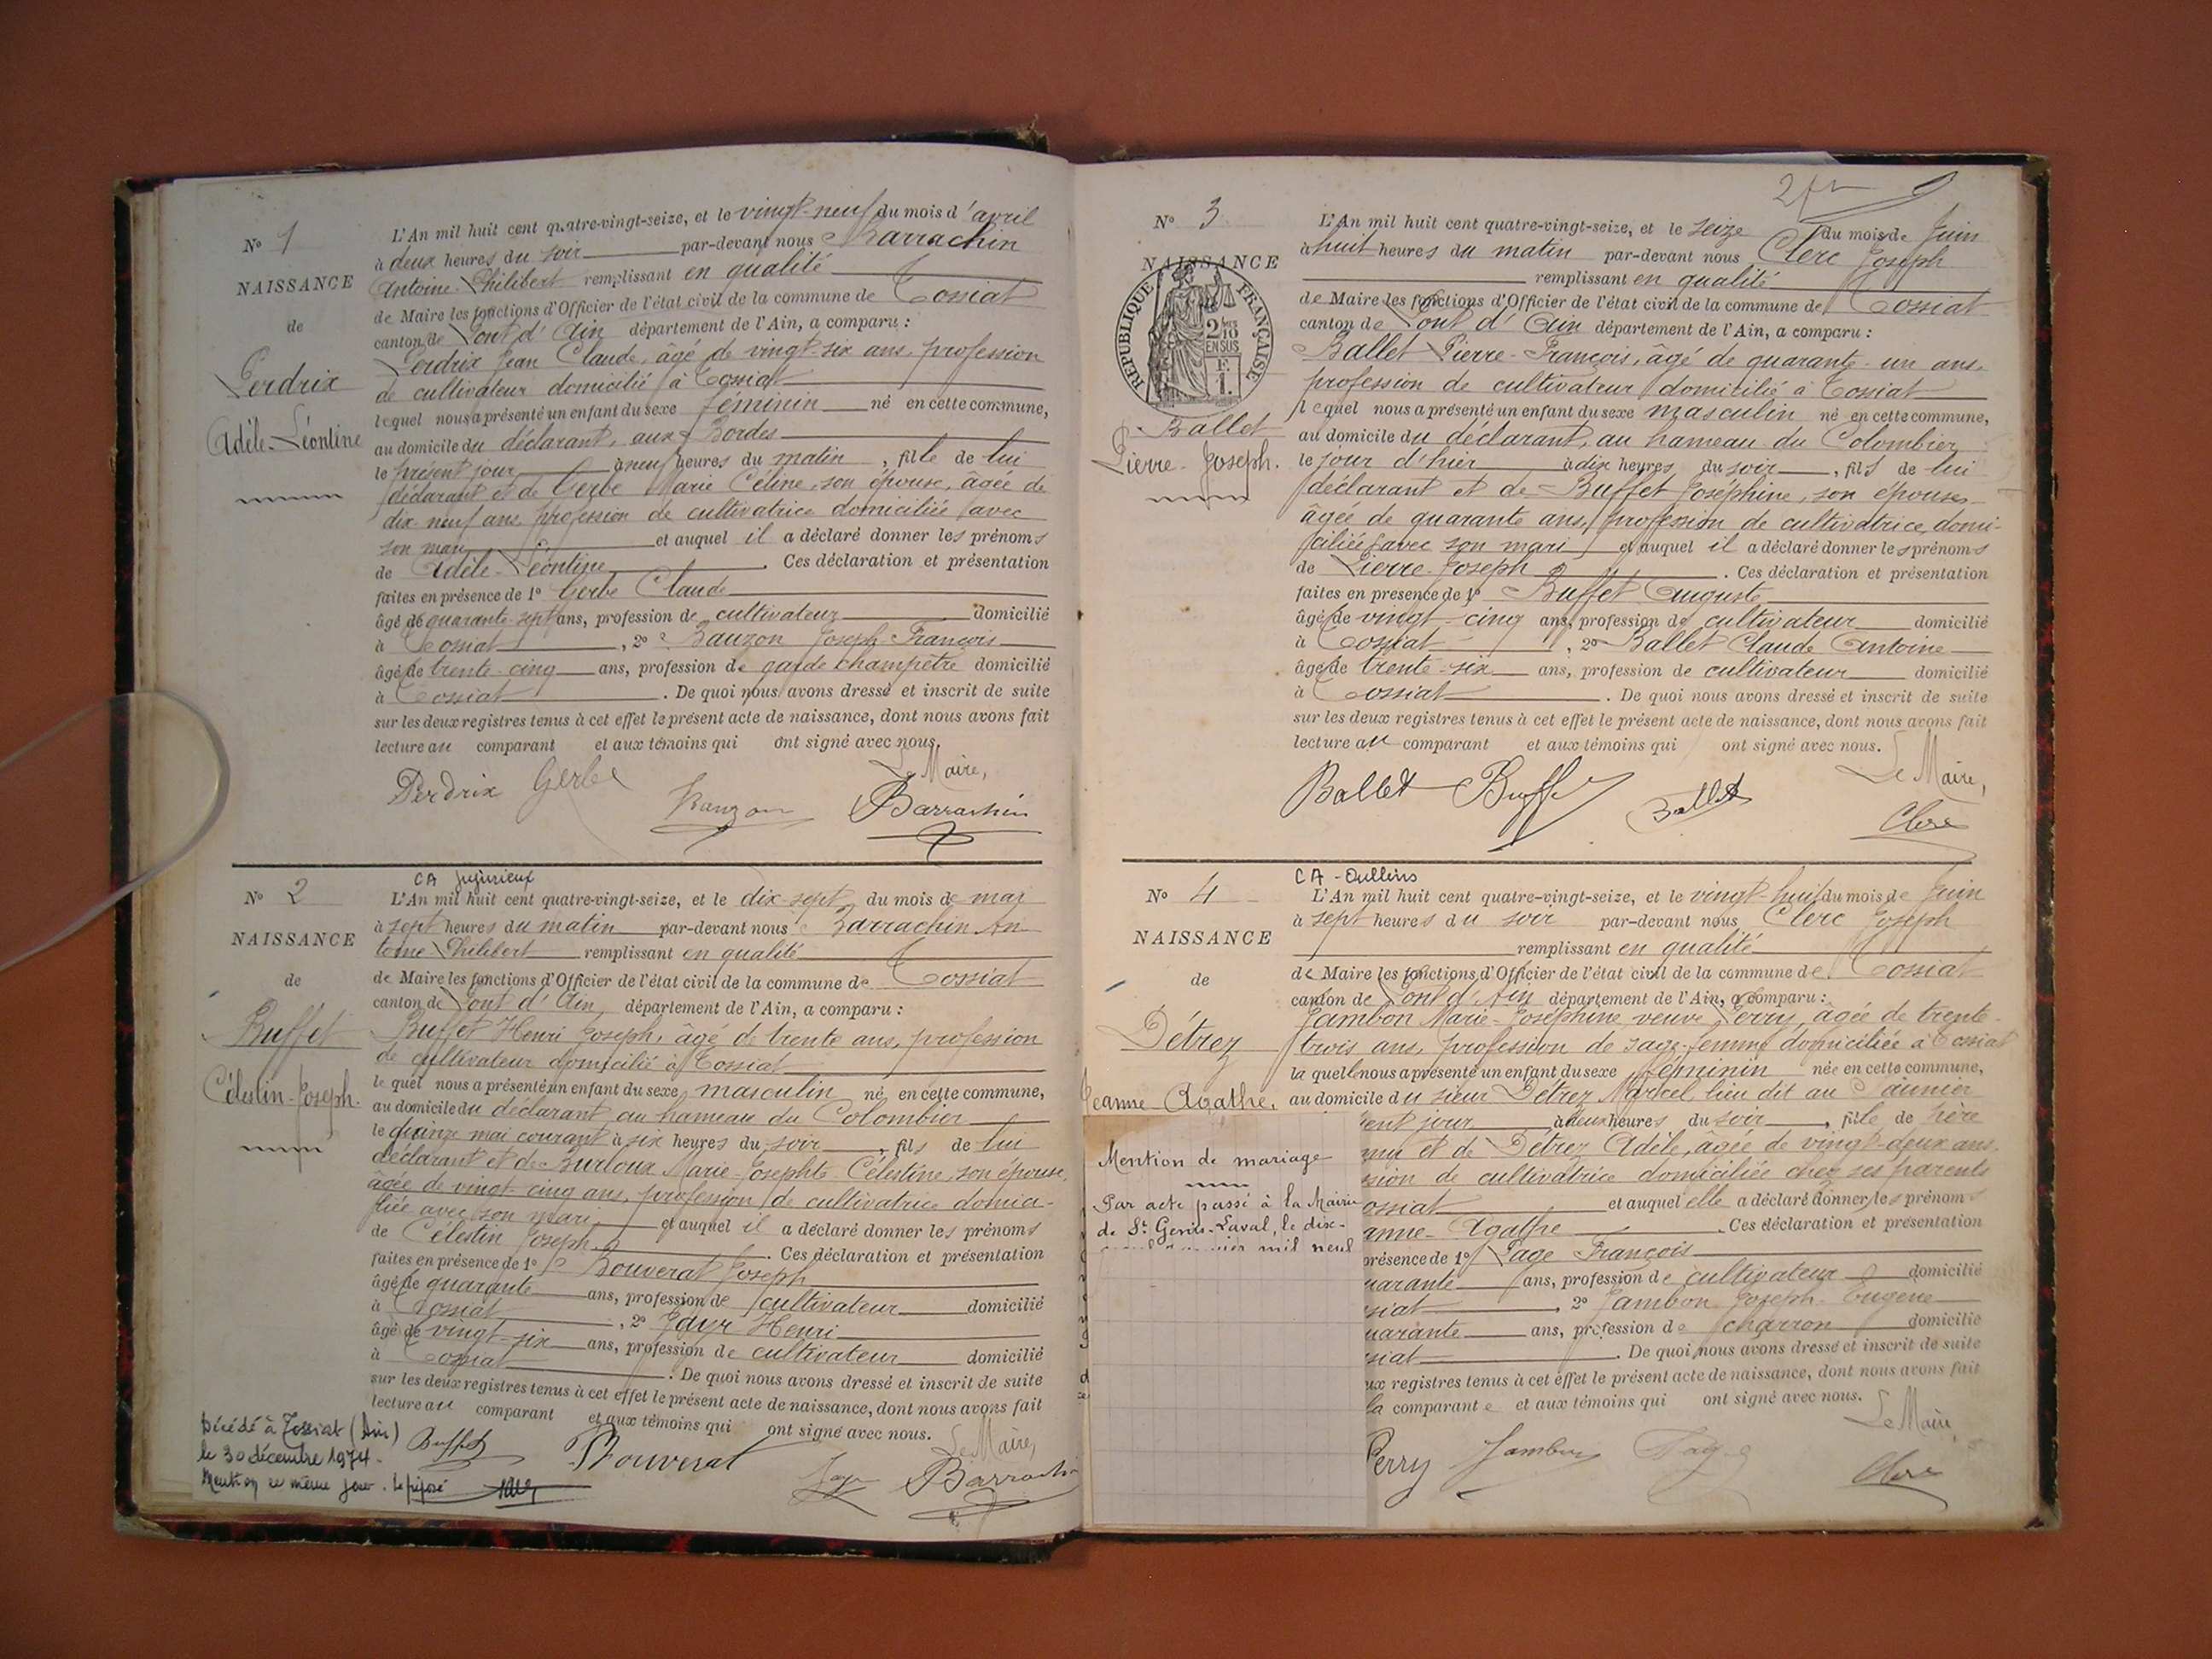 N° 1
NAISSANCE
de
Perdrix
Adèle-Léontine
L'An mil huit cent quatre-vingt-seize, et le vingt-neuf du mois d'avril
à deux heures du soir par-devant nous Barrachin
Antoine Philibert remplissant en qualité
de Maire les fonctions d'Officier de l'état civil de la commune de Tossiat
canton de Pont d'Ain département de l'Ain, a comparu :
Perdrix Jean Claude, âgé de vingt-six ans, profession
de cultivateur domicilié à Tossiat
lequel nous a présenté un enfant du sexe féminin né en cette commune,
au domicile du déclarant, aux Bordes
le présent jour à neuf heures du matin, fille de lui
déclarant et de Gerbe Marie Céline, son épouse, âgée de
dix-neuf ans, profession de cultivatrice domiciliée avec
son mari et auquel il a déclaré donner les prénoms
de Adèle-Léontine. Ces déclaration et présentation
faites en présence de 1° Gerbe Claude
âgé de quarante-sept ans, profession de cultivateur domicilié
à Tossiat, 2° Bauzon Joseph-François
âgé de trente-cinq ans, profession de garde champêtre domicilié
à Tossiat. De quoi nous avons dressé et inscrit de suite
sur les deux registres tenus à cet effet le présent acte de naissance, dont nous avons fait
lecture au comparant et aux témoins qui ont signé avec nous.
Le Maire,
Perdrix Gerbe Bauzon Barrachin
N° 2
NAISSANCE
de
Buffet
Célestin-Joseph.
CA Jujurieux
L'An mil huit cent quatre-vingt-seize, et le dix sept du mois de mai
à sept heures du matin par-devant nous Barrachin An
toine Philibert remplissant en qualité
de Maire les fonctions d'Officier de l'état civil de la commune de Tossiat
canton de Pont d'Ain, département de l'Ain, a comparu :
Buffet Henri Joseph, âgé de trente ans, profession
de cultivateur domicilié à Tossiat
le quel nous a présenté un enfant du sexe masculin né en cette commune,
au domicile du déclarant au hameau du Colombier
le quinze mai courant à six heures du soir, fils de lui
déclarant et de Burloux Marie-Josephte Célestine, son épouse,
âgée de vingt-cinq ans, profession de cultivatrice domici-
liée avec son mari et auquel il a déclaré donner les prénoms
de Célestin Joseph. Ces déclaration et présentation
faites en présence de 1° Bouverat Joseph
âgé de quarante ans, profession de cultivateur domicilié
à Tossiat, 2° Henri
âgé de vingt-six ans, profession de cultivateur domicilié
à Tossiat. De quoi nous avons dressé et inscrit de suite
sur les deux registres tenus à cet effet le présent acte de naissance, dont nous avons fait
lecture au comparant et aux témoins qui ont signé avec nous.
Le Maire,
Buffet Bouverat Barrachin
Décédé à Tossiat (Ain)
le 30 décembre 1974.
Mention ce même jour. Le préposé
2
N° 3
NAISSANCE
RÉPUBLIQUE FRANÇAISE
2/10
EN SUS
F.
1.
Ballet
Pierre-Joseph.
L'An mil huit cent quatre-vingt-seize, et le seize du mois de Juin
à huit heures du matin par-devant nous Clerc Joseph
remplissant en qualité
de Maire les fonctions d'Officier de l'état civil de la commune de Tossiat
canton de Pont d'Ain département de l'Ain, a comparu :
Ballet Pierre-François, âgé de quarante-un ans,
profession de cultivateur domicilié à Tossiat
lequel nous a présenté un enfant du sexe masculin né en cette commune,
au domicile du déclarant, au hameau du Colombier
le jour d'hier à dix heures du soir, fils de lui
déclarant et de Buffet Joséphine, son épouse
âgée de quarante ans, profession de cultivatrice domi-
ciliée avec son mari et auquel il a déclaré donner les prénoms
de Pierre-Joseph. Ces déclaration et présentation
faites en présence de 1° Buffet Auguste
âgé de vingt-cinq ans, profession de cultivateur domicilié
à Tossiat, 2° Ballet Claude Antoine
âgé de trente-six ans, profession de cultivateur domicilié
à Tossiat. De quoi nous avons dressé et inscrit de suite
sur les deux registres tenus à cet effet le présent acte de naissance, dont nous avons fait
lecture au comparant et aux témoins qui ont signé avec nous.
Le Maire,
Ballet Buffet Ballet Clerc
N° 4
NAISSANCE
de
Détrez
Jeanne-Agathe.
CA - Oullins
L'An mil huit cent quatre-vingt-seize, et le vingt-huit du mois de Juin
à sept heures du soir par-devant nous Clerc Joseph
remplissant en qualité
de Maire les fonctions d'Officier de l'état civil de la commune de Tossiat
canton de Pont d'Ain département de l'Ain, a comparu :
Jambon Marie-Joséphine veuve Perry, âgée de trente-
trois ans, profession de sage-femme domiciliée à Tossiat
la quelle nous a présenté un enfant du sexe féminin née en cette commune,
au domicile du sieur Détrez Marcel, lieu dit au
ent jour à deux heures du soir, fille de père
nu et de Détrez Adèle, âgée de vingt-deux ans,
sion de cultivatrice domiciliée chez ses parents
ossiat et auquel elle a déclaré donner les prénoms
anne-Agathe. Ces déclaration et présentation
présence de 1° Page François
uarante ans, profession de cultivateur domicilié
siat, 2° Jambon Joseph-Eugène
uarante ans, profession de charron domicilié
siat. De quoi nous avons dressé et inscrit de suite
ux registres tenus à cet effet le présent acte de naissance, dont nous avons fait
la comparante et aux témoins qui ont signé avec nous.
Le Maire,
Perry Jambon Page Clerc
Mention de mariage
Par acte passé à la Mairie
de St Genis-Laval, le dix-
mil neuf